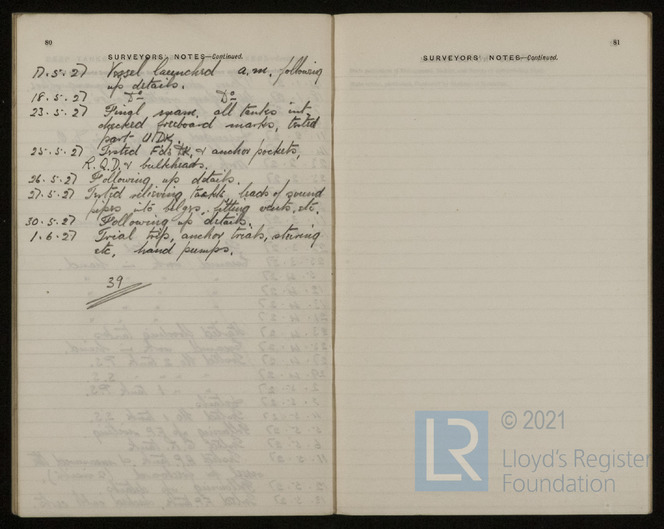 80
SURVEYORS' NOTES—Continued.
17.5.27 Vessel launched a.m. following
up details.
18.5.27 Do Do
23.5.27 Final exam. all tanks int.
checked freeboard marks, tested
part U.Dk.
25.5.27 Tested Fcle Dk. & anchor pockets,
R.Q.D. & bulkheads.
26.5.27 Following up details.
27.5.27 Tested relieving tackle, leads of sound
pipes into bilges, fitting vents, etc.
30.5.27 Following up details.
1.6.27 Trial trip, anchor trials, steering
etc, hand pumps.
39
81
SURVEYORS' NOTES—Continued.
LR
© 2021
Lloyd's Register
Foundation